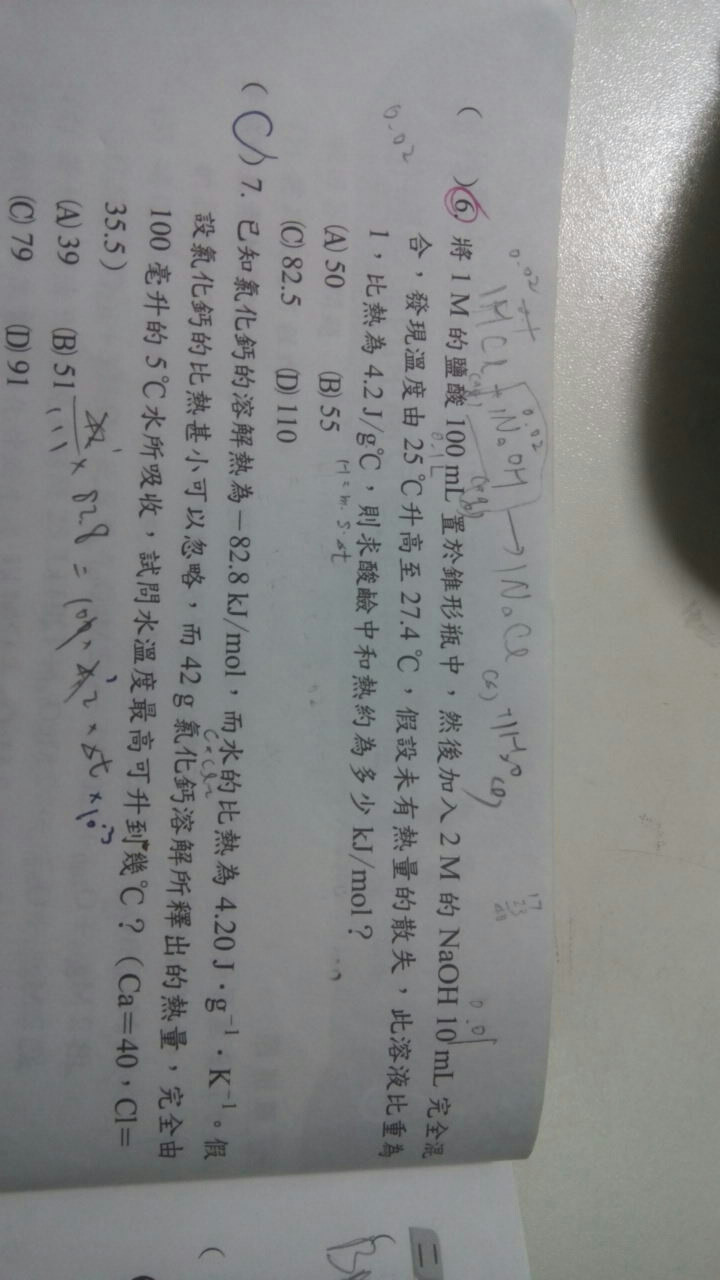 0.02
0.02
1HCl(aq) + 1NaOH(aq) → 1NaCl
17
23
0.01
( )6. 將 1 M 的鹽酸 100 mL 置於錐形瓶中，然後加入 2 M 的 NaOH 10 mL 完全混
0.1L
合，發現溫度由 25 ℃升高至 27.4 ℃，假設未有熱量的散失，此溶液比重為
1，比熱為 4.2 J/g℃，則求酸鹼中和熱約為多少 kJ/mol？
0.02
(A) 50 (B) 55
H = m．s．Δt
(C) 82.5 (D) 110
(C)7. 已知氯化鈣的溶解熱為－82.8 kJ/mol，而水的比熱為 4.20 J．g⁻¹．K⁻¹。假
設氯化鈣的比熱甚小可以忽略，而 42 g 氯化鈣溶解所釋出的熱量，完全由
CaCl₂
100 毫升的 5 ℃水所吸收，試問水溫度最高可升到幾℃？（Ca＝40，Cl＝
35.5）
(A) 39 (B) 51
(C) 79 (D) 91
二